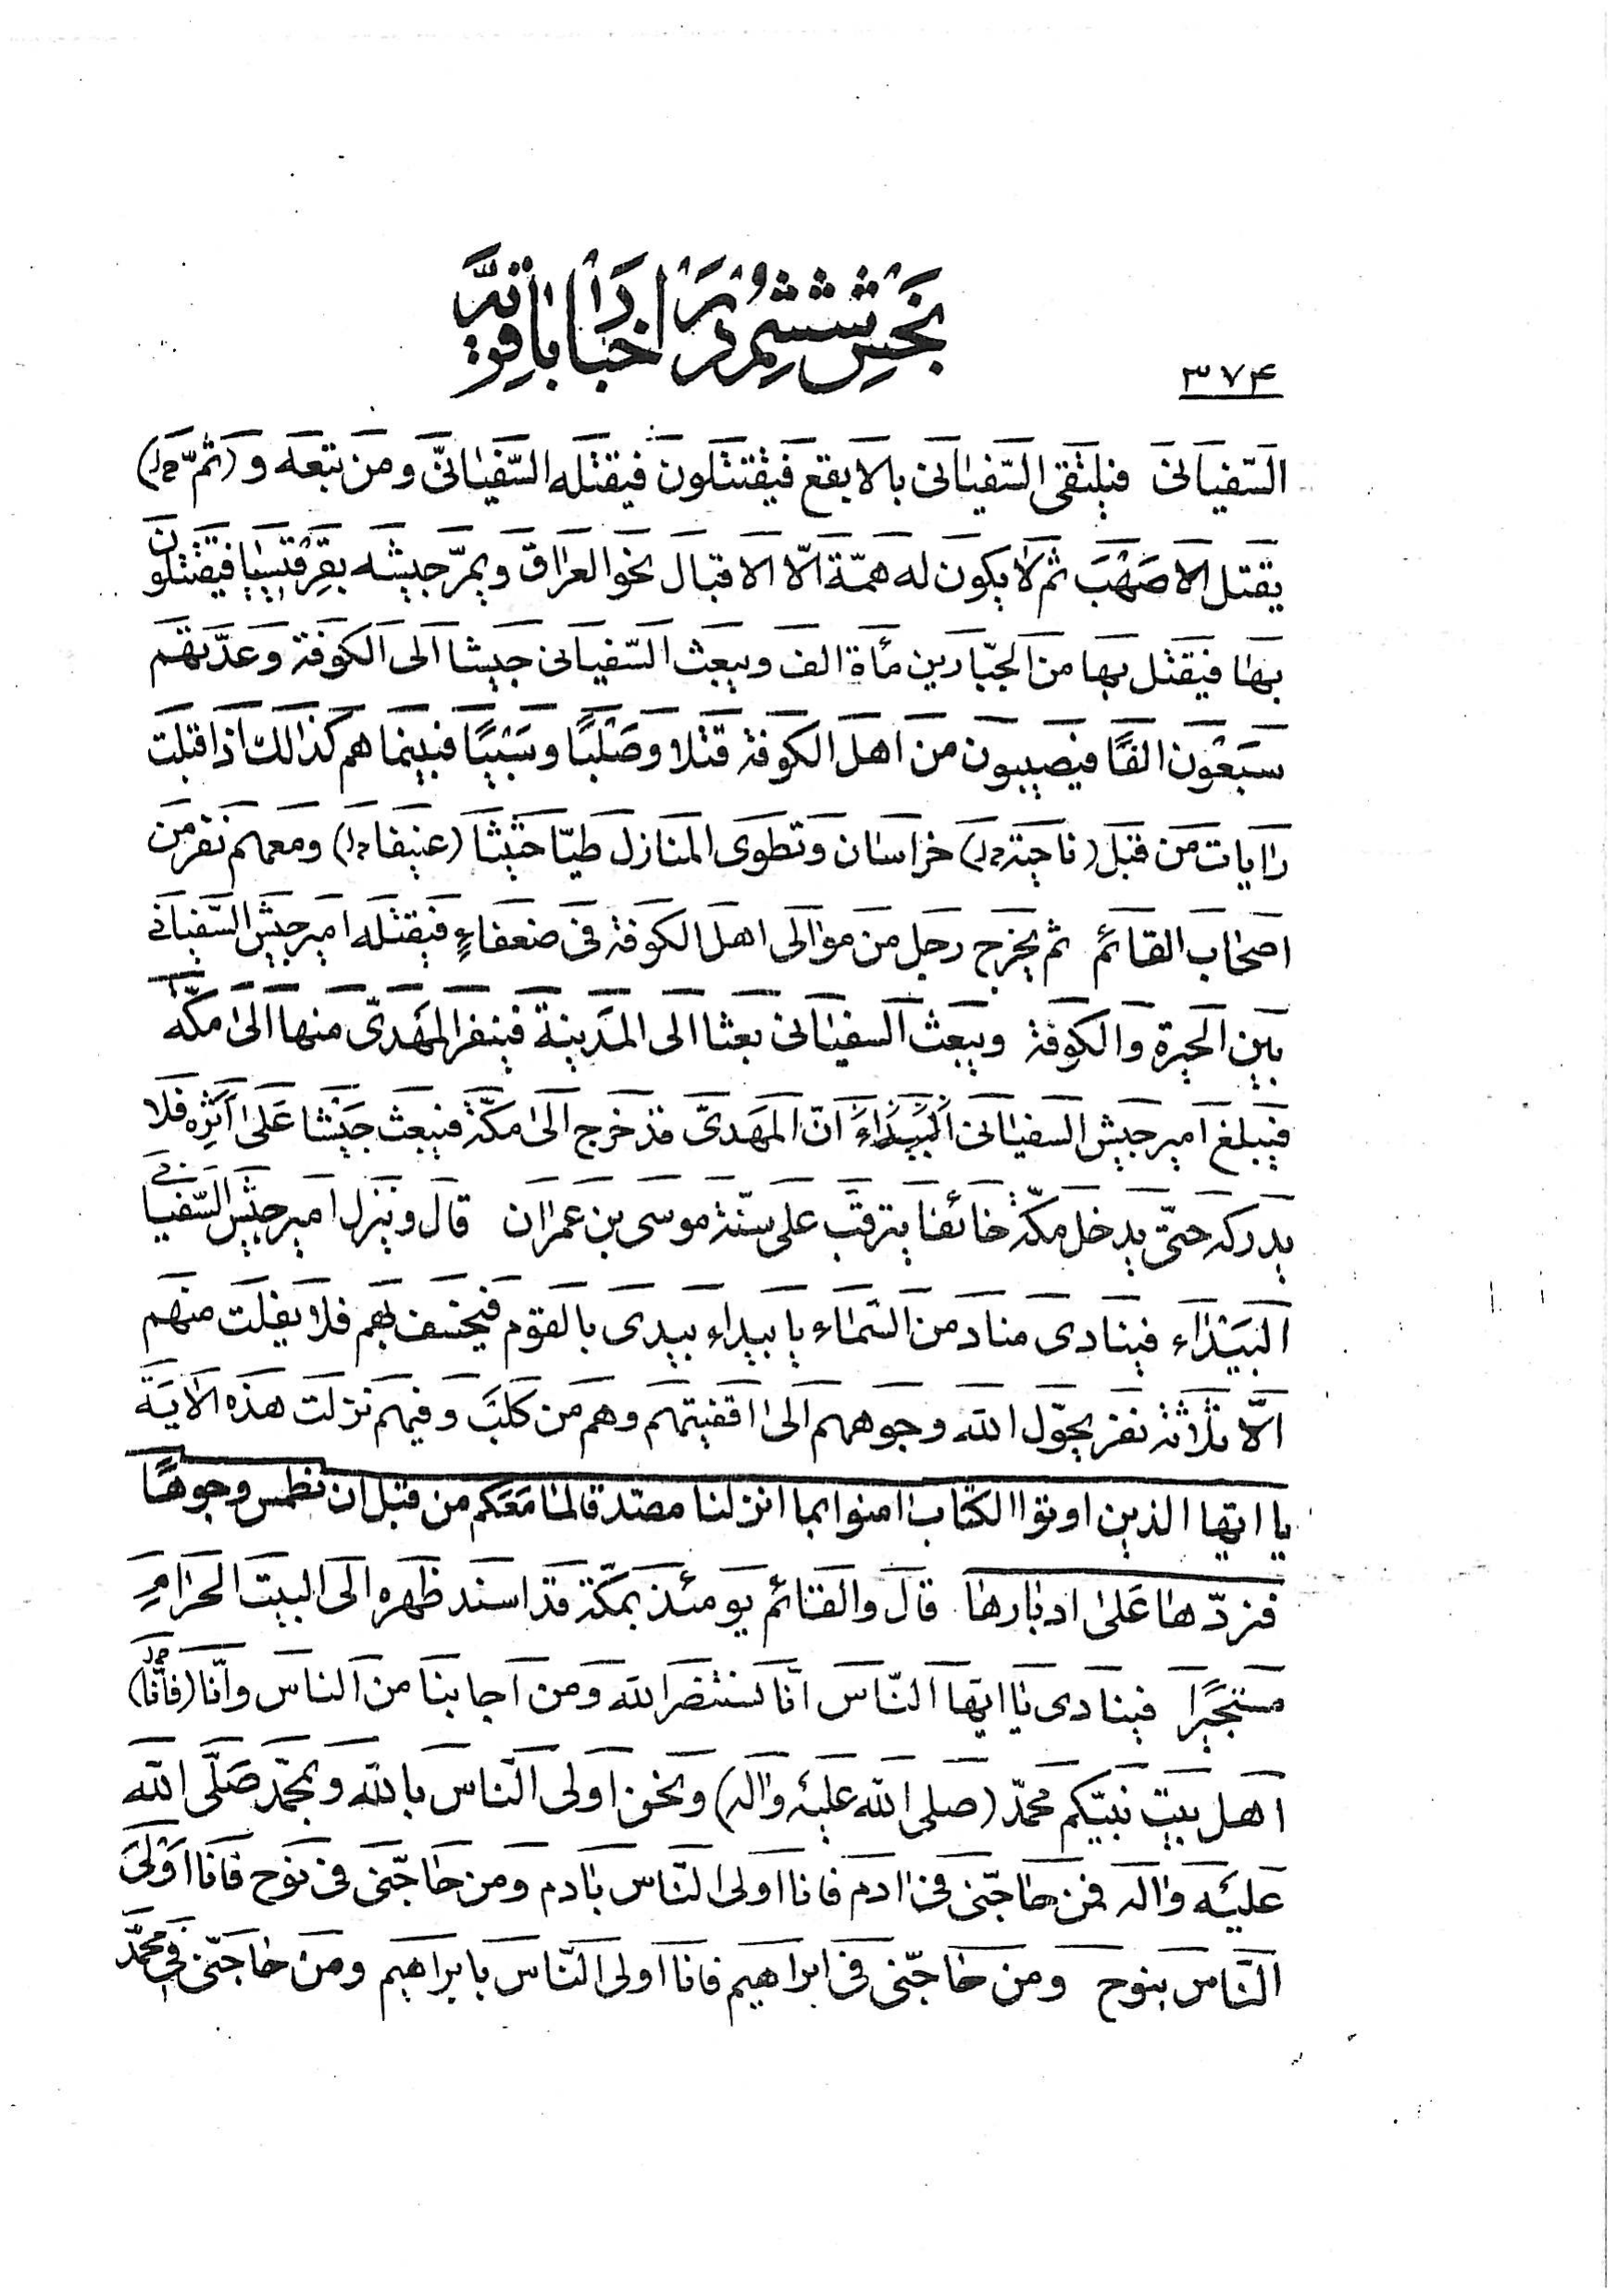 بخش ششم در اخبار باقریه
۳۷۴
السّفیانی فیلتقی السّفیانی بالابقع فیقتتلون فیقتله السّفیانیّ ومن تبعه و (ثمّ خ‌ل)
یقتل الاصهب ثم لا یکون له همّة الّا الاقبال نحو العراق ویمرّ جیشه بقرقیسیا فیقتتلون
بها فیقتل بها من الجبّارین مأة الف ویبعث السّفیانی جیشا الی الکوفة وعدّتهم
سبعون الفًا فیصیبون من اهل الکوفة قتلا وصلبًا وسبیًا فبینما هم کذالک اذ اقبلت
رایات من قبل (ناحیة خ‌ل) خراسان وتطوی المنازل طیّا حثیثا (عنیفا خ‌ل) ومعهم نفر من
اصحاب القائم ثم یخرج رجل من موالی اهل الکوفة فی ضعفاءٍ فیقتله امیر جیش السّفیانی
بین الحیرة والکوفة ویبعث السفیانی بعثا الی المدینة فینفر المهدیّ منها الی مکّة
فیبلغ امیر جیش السفیانی البیداء انّ المهدیّ قد خرج الی مکّة فیبعث جیشا علی اثره فلا
یدرکه حتّی یدخل مکّة خائفا یترقّب علی سنّة موسی بن عمران قال وینزل امیر جیش السّفیانی
البیداء فینادی مناد من السّماء یا بیداء بیدی بالقوم فیخسف بهم فلا یفلت منهم
الّا ثلاثة نفر یحوّل الله وجوههم الی اقفیتهم وهم من کلب وفیهم نزلت هذه الایة
یا ایّها الذین اوتوا الکتاب امنوا بما انزلنا مصدّقا لما معکم من قبل ان نطمس وجوهًا
فنردّها علی ادبارها قال والقائم یومئذ بمکّة قد اسند ظهره الی البیت الحرام
مستجیرًا فینادی یا ایّها النّاس انّا نستنصر الله ومن اجابنا من الناس وانّا (فانّا خ‌ل)
اهل بیت نبیّکم محمّد (صلی الله علیه واله) ونحن اولی النّاس بالله وبمحمّد صلّی الله
علیه واله فمن حاجّنی فی ادم فانا اولی النّاس بادم ومن حاجّنی فی نوح فانا اولی
النّاس بنوح ومن حاجّنی فی ابراهیم فانا اولی النّاس بابراهیم ومن حاجّنی فی محمّد